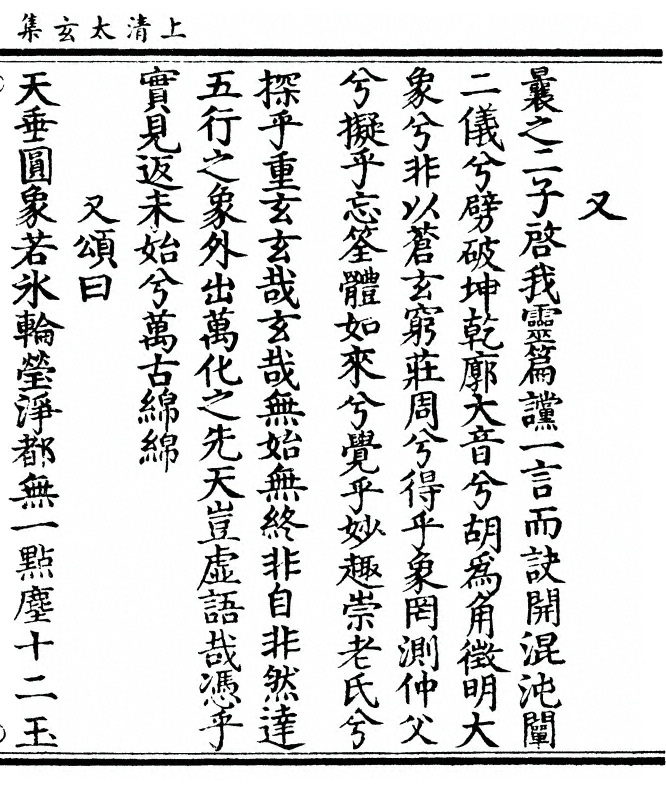 上清太玄集
又
曩之二子啓我靈篇讜一言而訣開混沌闡
二儀兮劈破坤乾廓大音兮胡爲角徵明大
象兮非以蒼玄窮莊周兮得乎象罔測仲父
兮擬乎忘筌體如來兮覺乎妙趣崇老氏兮
探乎重玄玄哉玄哉無始無終非自非然達
五行之象外出萬化之先天豈虛語哉憑乎
實見返未始兮萬古綿綿
又頌曰
天垂圓象若氷輪瑩淨都無一點塵十二玉